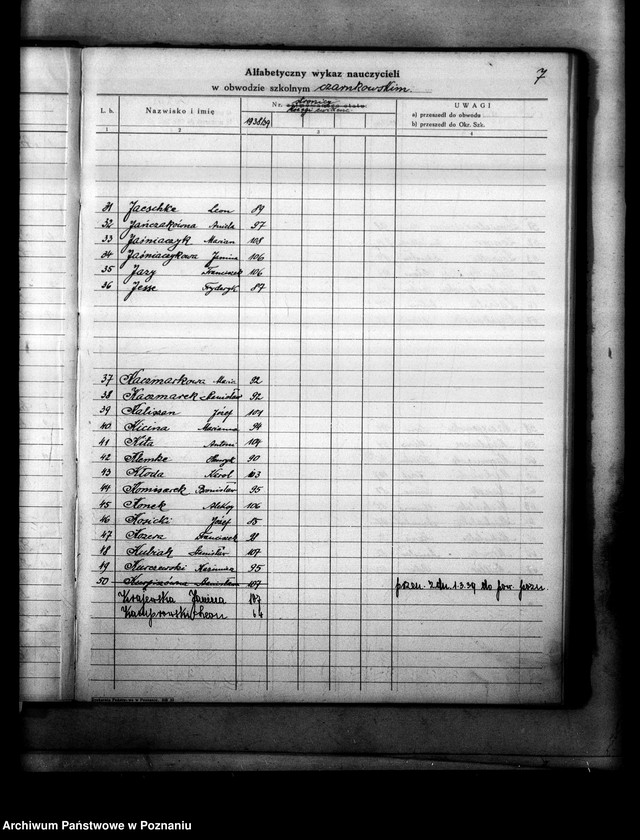 7
Alfabetyczny wykaz nauczycieli
w obwodzie szkolnym czarnkowskim
L. b. Nazwisko i imię Nr. stronicy UWAGI
księgi ewidenc.
1938/39 a) przeszedł do obwodu
b) przeszedł do Okr. Szk.
1 2 3 4
31 Jaeschke Leon 89
32 Jańczakówna Aniela 97
33 Jaśniaczyk Marian 108
34 Jaśniaczykowa Janina 106
35 Jary Franciszek 106
36 Jesse Fryderyk 87
37 Kaczmarkowa Maria 92
38 Kaczmarek Stanisław 92
39 Kaliszan Józef 101
40 Kicina Marianna 94
41 Kita Antoni 104
42 Klemke Henryk 90
43 Kłoda Karol 103
44 Komisarek Bronisław 95
45 Konek Aleksy 106
46 Kosicki Józef 85
47 Kozera Franciszek 98
48 Kubiak Stanisław 107
49 Kurczewski Kazimierz 95
50 Stanisława 107 przen. z dn. 1.3.39 do pow.
Krajewska Janina 107
Leon 64
Archiwum Państwowe w Poznaniu